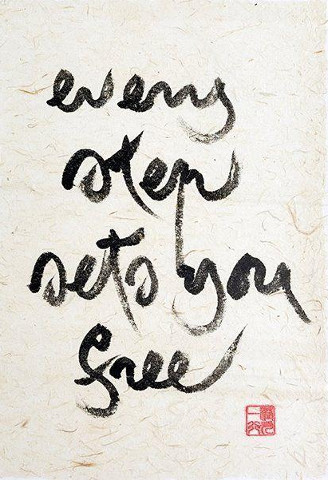 every
step
sets you
free